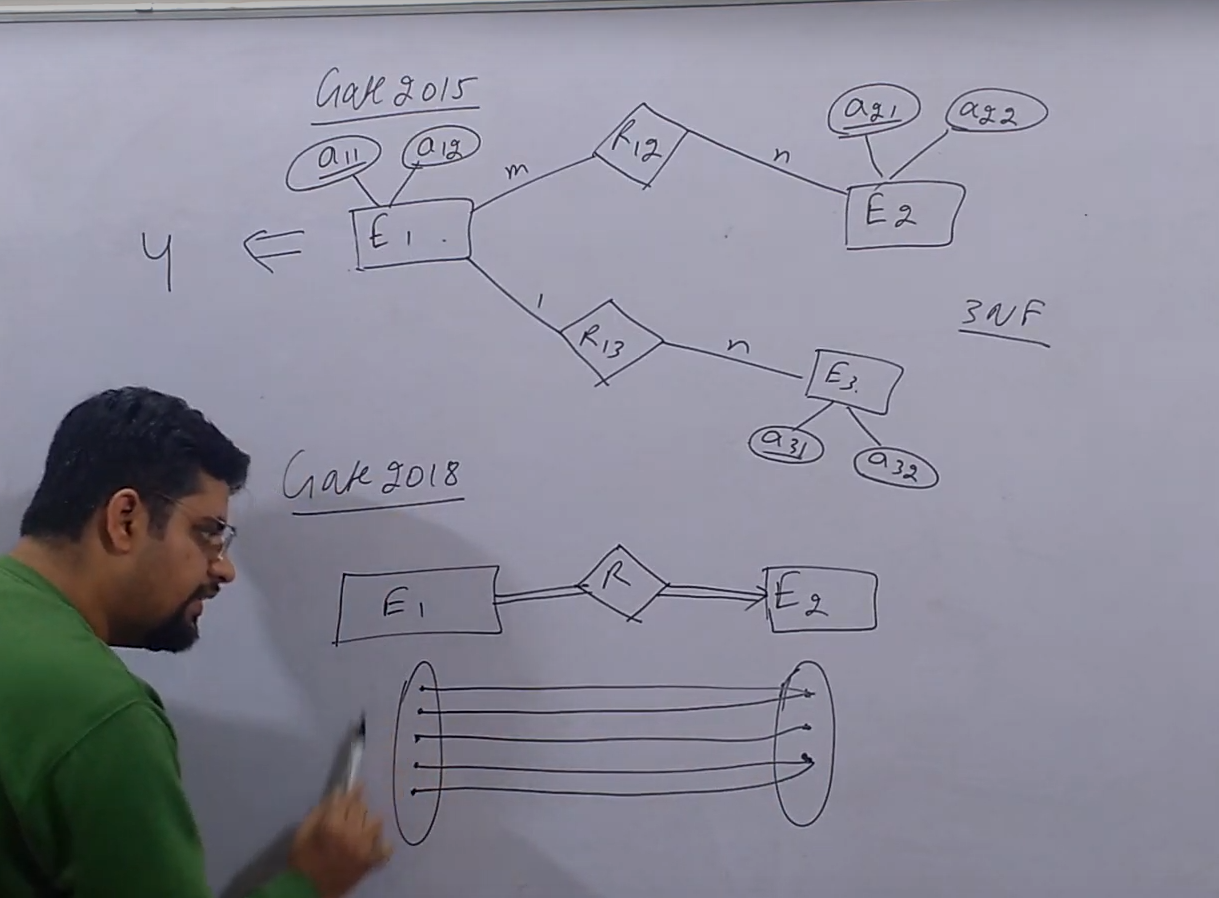 Gate 2015
a11 a12
R12
a21 a22
m
n
E1
E2
4 ⇐
1
R13
n
E3
3NF
a31 a32
Gate 2018
E1
R
E2